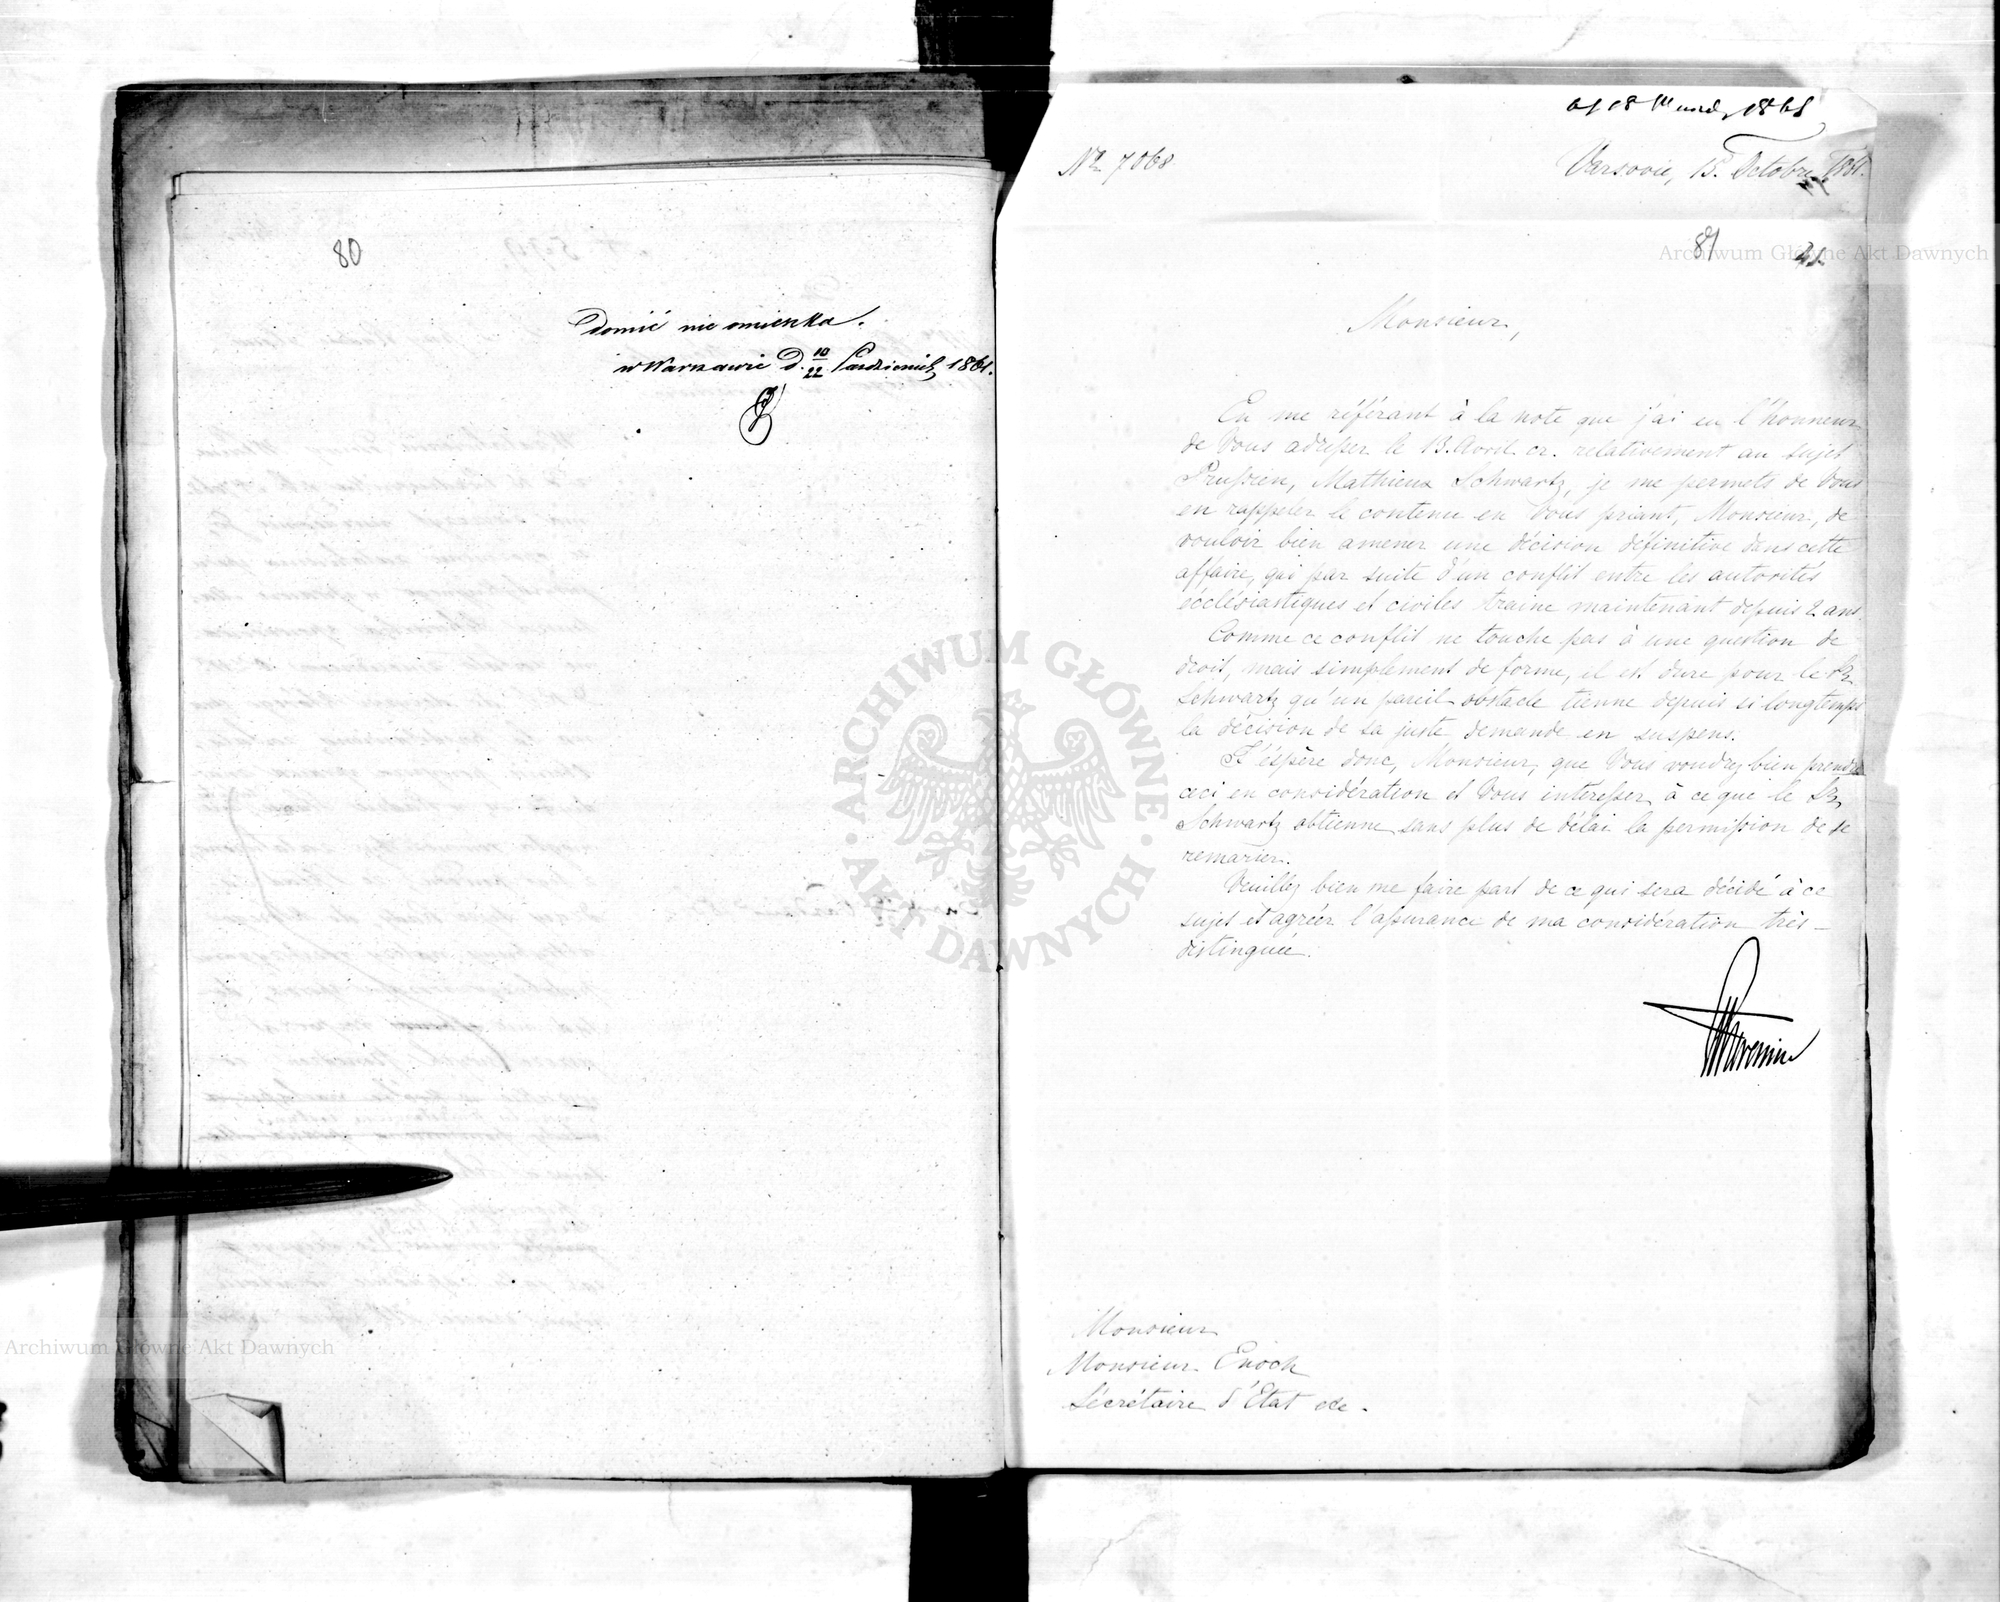 80
donieść nie omieszka.
w Warszawie D. 10/22 Październik 1861.
1861
No 7068
Varsovie, 15. Octobre 1861.
81
Monsieur,
En me référant à la note que j'ai eu l'honneur
de Vous adresser le 13. Avril cr. relativement au sujet
Prussien, Mathieux Schwartz, je me permets de Vous
en rappéler le contenu en Vous priant, Monsieur, de
vouloir bien amener une décision définitive dans cette
affaire, qui par suite d'un conflit entre les autorités
écclésiastiques et civiles traine maintenant depuis 2 ans.
Comme ce conflit ne touche pas à une question de
droit, mais simplement de forme, il est dure pour le Sr
Schwartz qu'un pareil obstacle tienne depuis si longtemps
la décision de sa juste demande en suspens.
J'éspère donc, Monsieur, que Vous voudrez bien prendre
ceci en considération et Vous interesser à ce que le Sr
Schwartz obtienne sans plus de délai la permission de se
remarier.
Veuillez bien me faire part de ce qui sera décidé à ce
sujet et agréer l'assurance de ma considération très-
distinguée.
Monsieur
Monsieur Enoch
Sécrétaire d'Etat etc.
ARCHIWUM GŁÓWNE AKT DAWNYCH
Archiwum Główne Akt Dawnych
Archiwum Główne Akt Dawnych